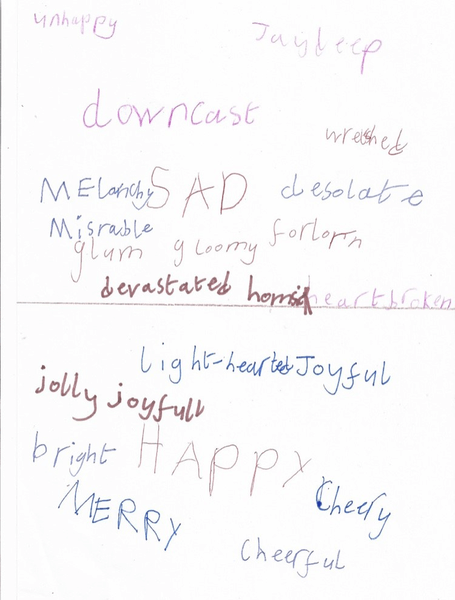 unhappy
Jaydeep
downcast
wreched
MElanchy SAD desolate
Misrable
glum gloomy forlorn
devastated homsick heartbroken
light-hearted Joyful
jolly joyfull
bright HAPPY
MERRY Cheery
Cheerful